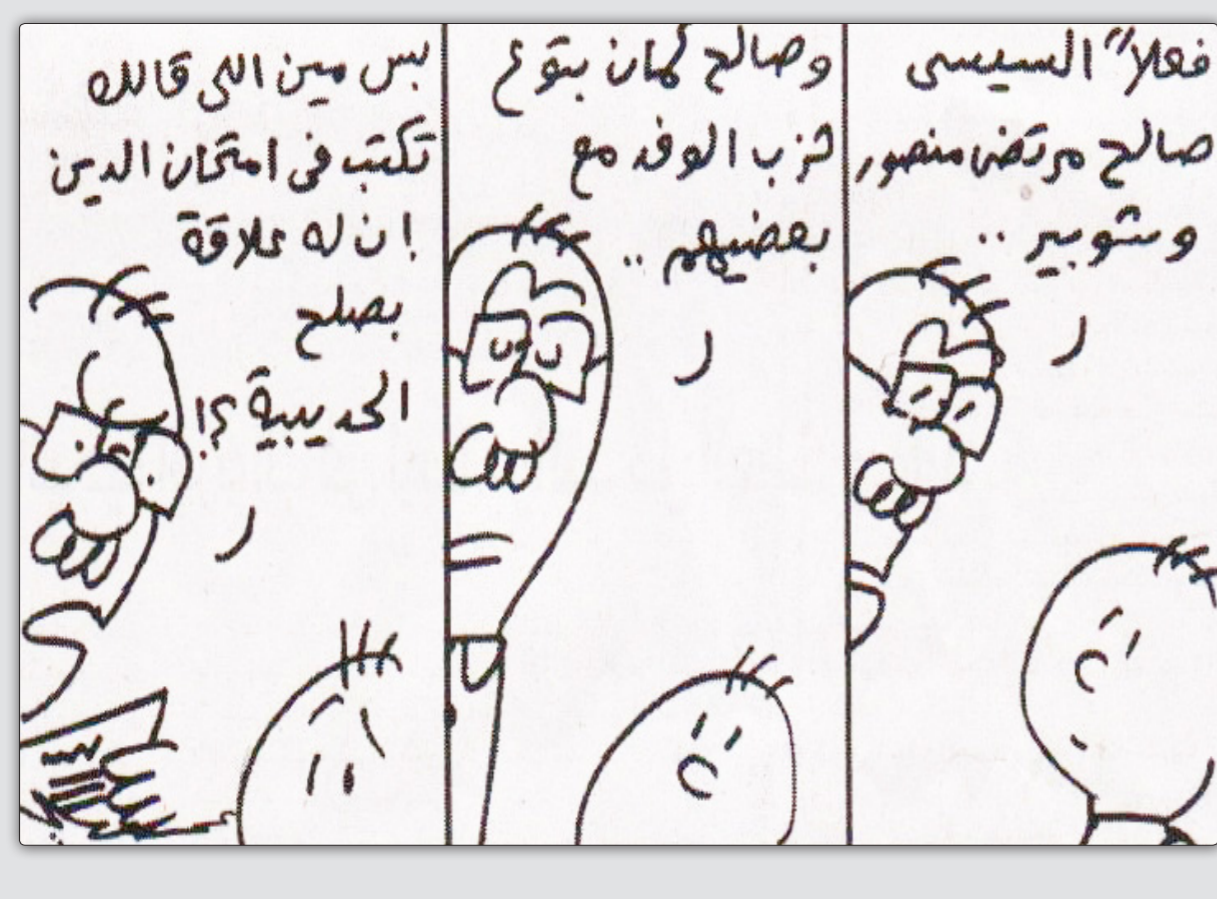 فعلاً السيسى
صالح مرتضى منصور
وشوبير ..
وصالح كمان بتوع
حزب الوفد مع
بعضيهم ..
بس مين اللى قالك
تكتب فى امتحان الدين
إن له علاقة
بصلح
الحديبية ؟!